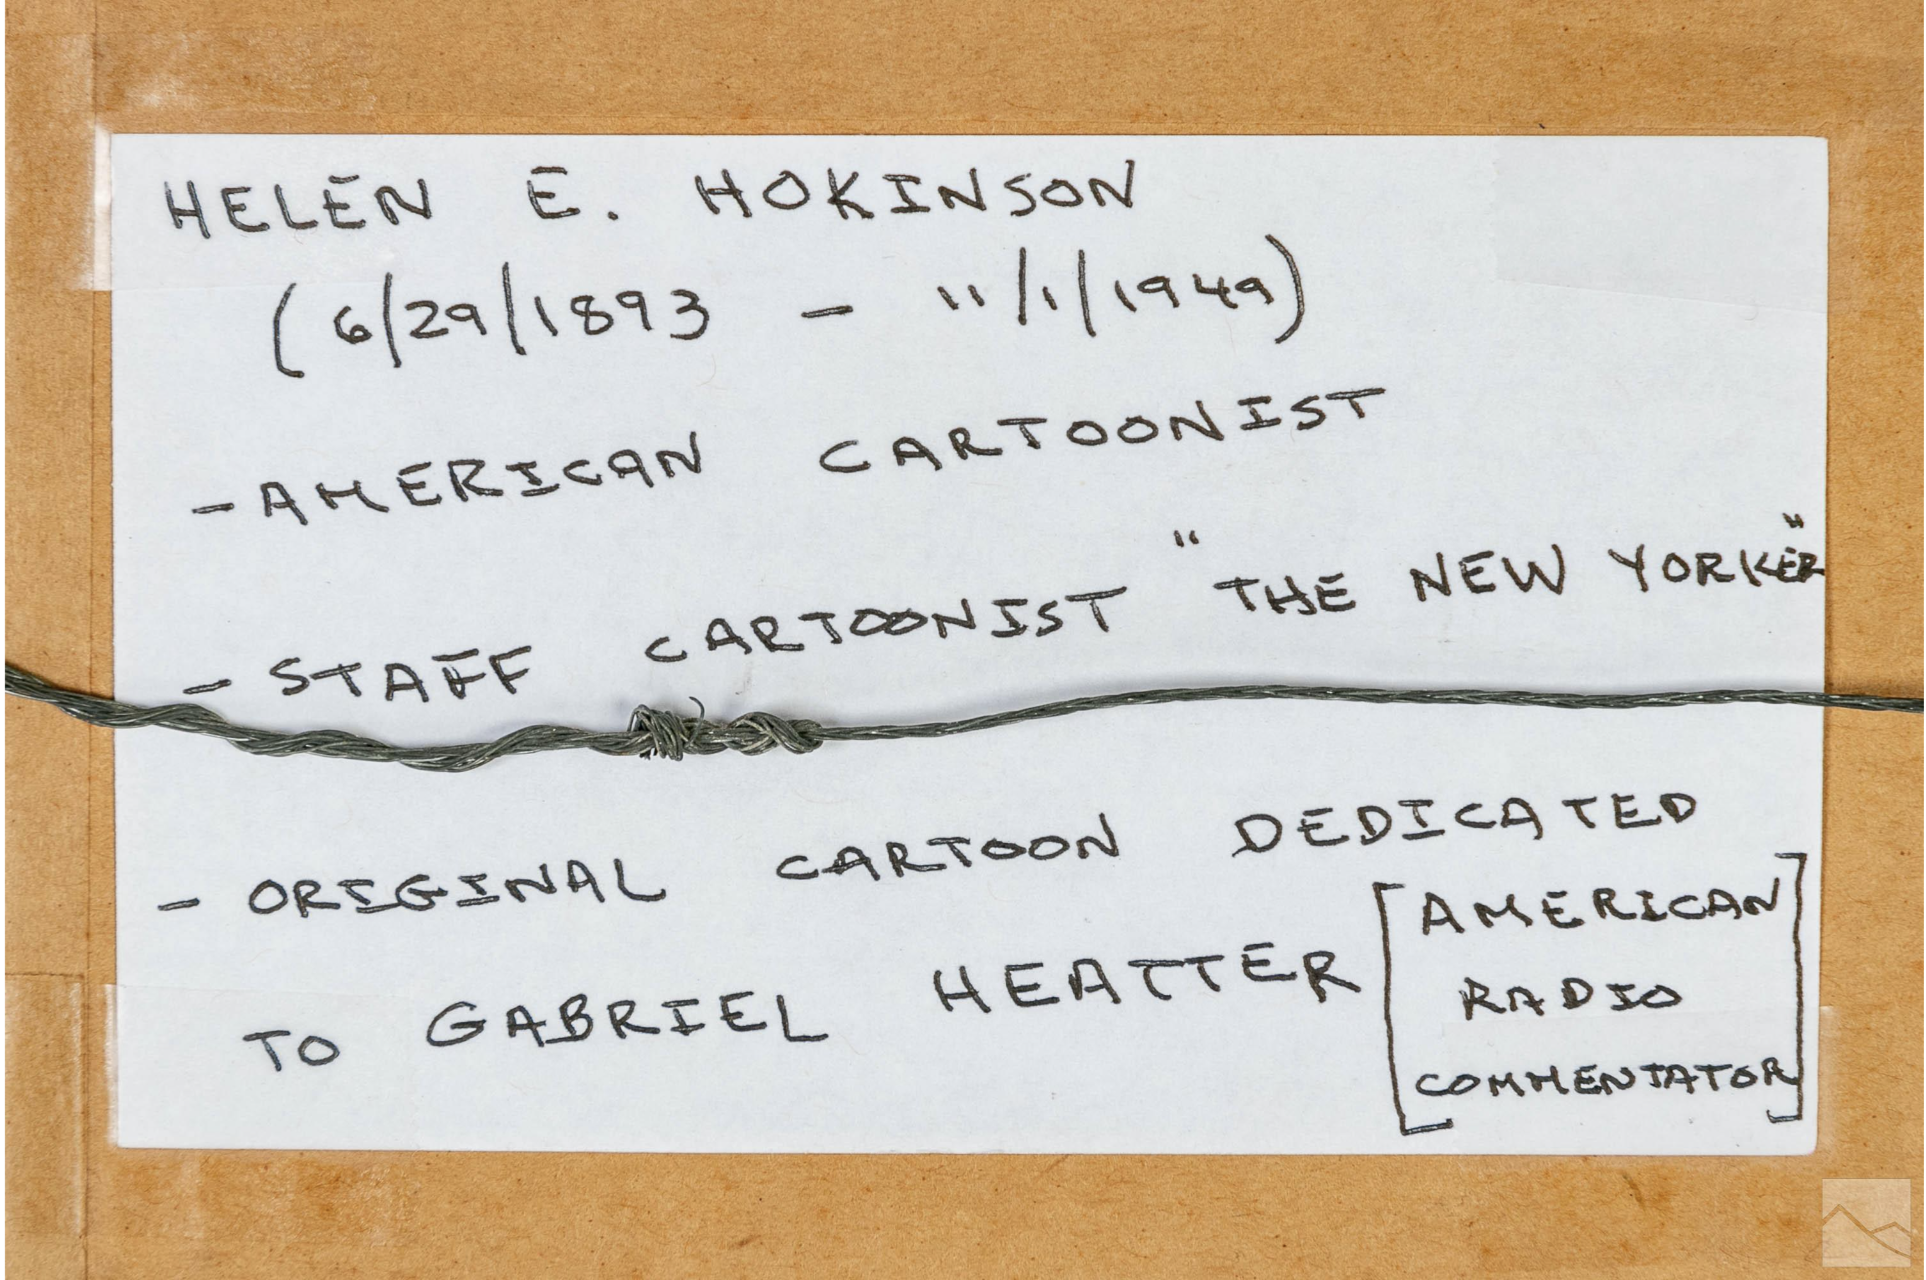 HELEN E. HOKINSON
(6/29/1893 - 11/1/1949)
- AMERICAN CARTOONIST
- STAFF CARTOONIST "THE NEW YORKER"
- ORIGINAL CARTOON DEDICATED
TO GABRIEL HEATTER [AMERICAN
RADIO
COMMENTATOR]